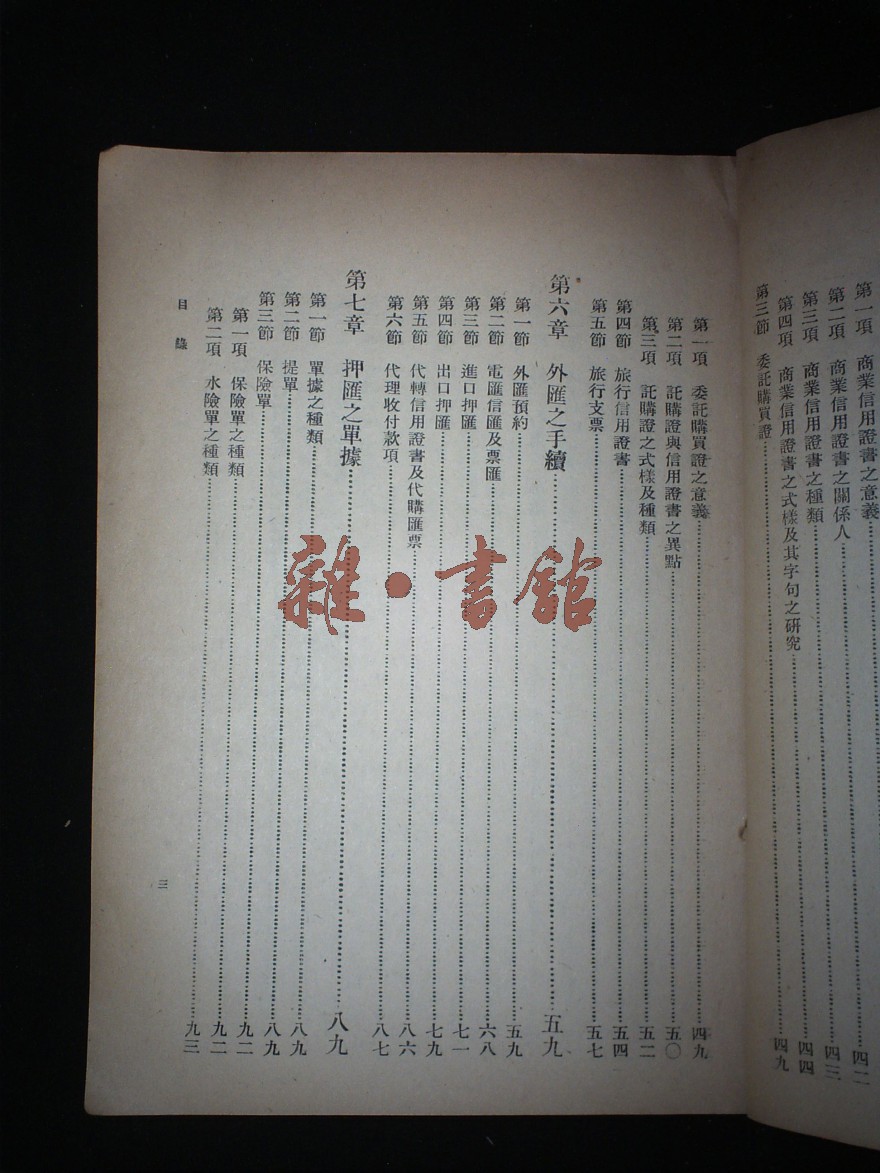 第一項 商業信用證書之意義
第二項 商業信用證書之關係人 四二
第三項 商業信用證書之種類 四三
第四項 商業信用證書之式樣及其字句之研究 四四
第三節 委託購買證 四九
第一項 委託購買證之意義 四九
第二項 託購證與信用證書之異點 五〇
第三項 託購證之式樣及種類 五二
第四節 旅行信用證書 五四
第五節 旅行支票 五七
第六章 外匯之手續 五九
第一節 外匯預約 五九
第二節 電匯信匯及票匯 六八
第三節 進口押匯 七一
第四節 出口押匯 七九
第五節 代轉信用證書及代購匯票 八六
第六節 代理收付款項 八七
第七章 押匯之單據 八九
第一節 單據之種類 八九
第二節 提單 八九
第三節 保險單 九二
第一項 保險單之種類 九二
第二項 水險單之種類 九三
目錄
三
雜·書館